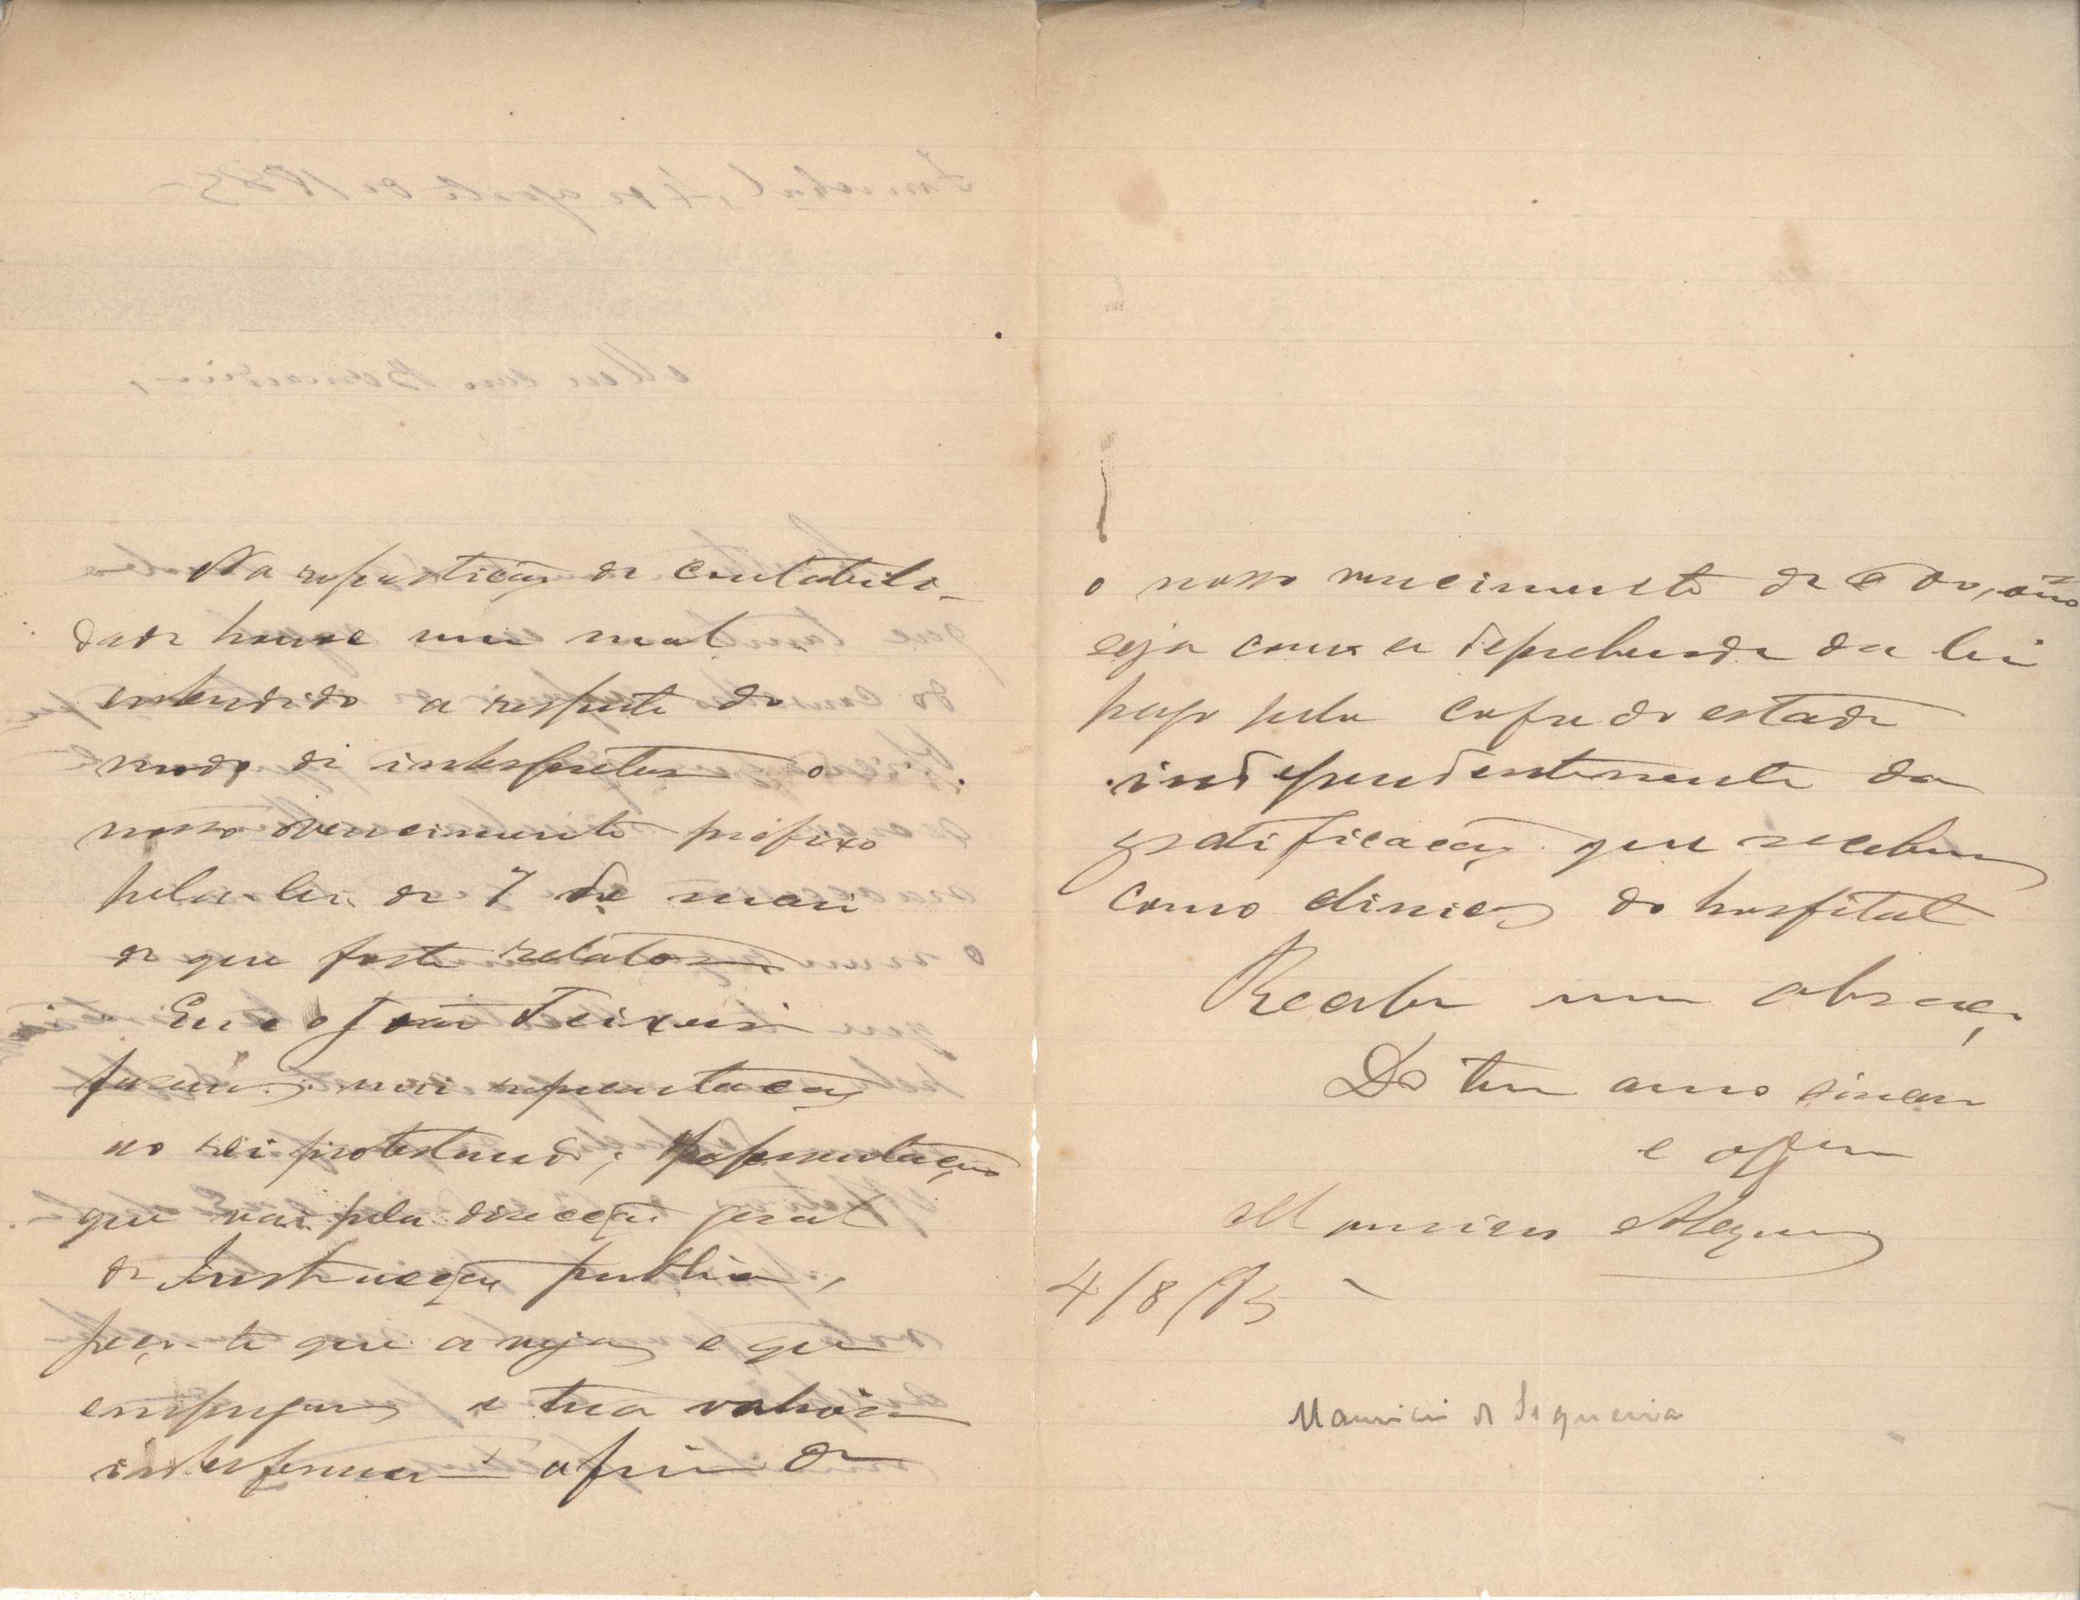 Na repartição de contabili-
dade houve um mal
entendido a respeito do
modo de interpretar o
nosso vencimento prefixo
pela lei de 7 de maio
de que foste relator
Eu e o João Teixeira
fazemos uma representação
ao rei protestando; representação
que vai pela direcção geral
de Instrucção publica,
peço-te que a vejas e que
empregues a tua valiosa
interferencia afim de
o nosso vencimento de
seja como se deprehende da lei
pago pelo cofre do estado
independentemente da
gratificação que recebem
como clinicos do hospital
Recebe um abraço
Do teu amo sincero
e
Mauricio
4/8/85
Mauricio de Sequeira